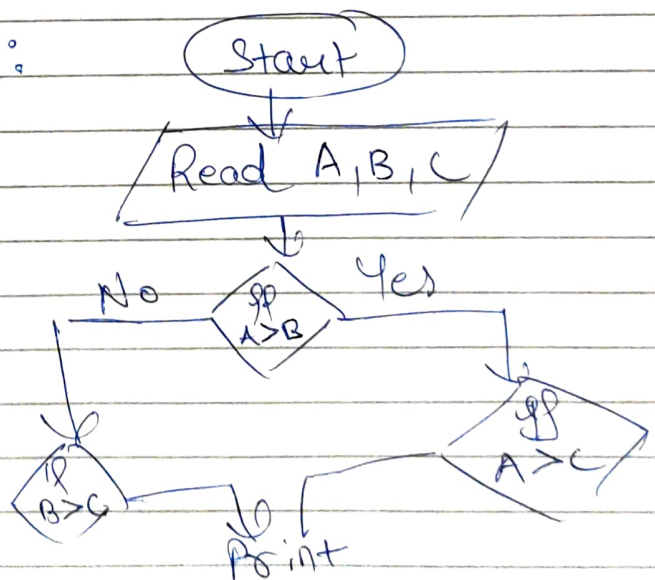 :
Start
Read A, B, C
No
Yes
If
A>B
If
A>C
If
B>C
Print